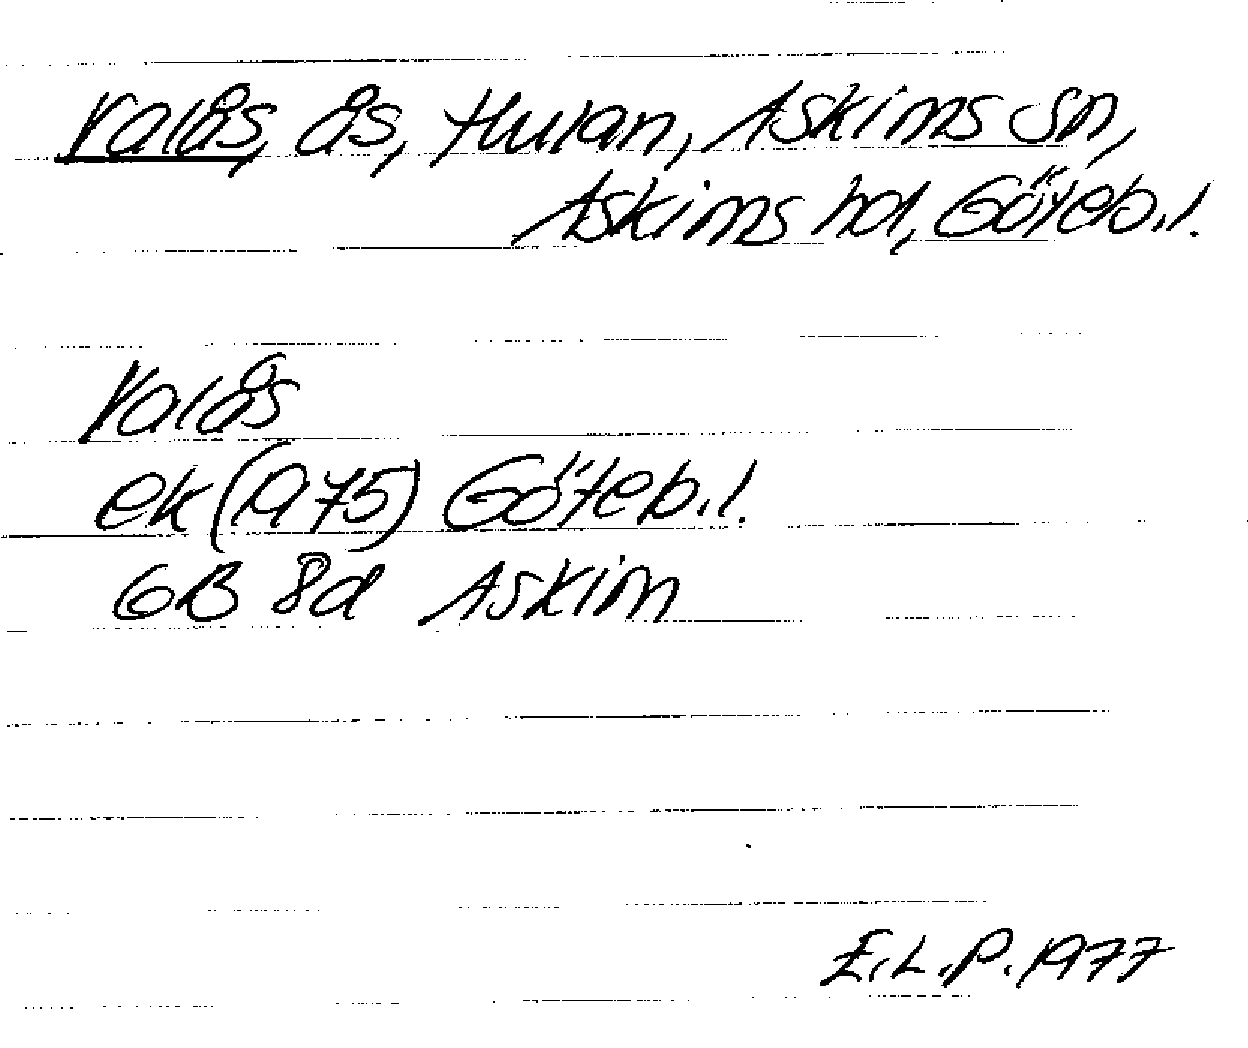 Valås, ås, Hulan, Askims sn,
Askims hd, Göteb.l.
Valås
ek (1975) Göteb.l.
GB 8d Askim
E.L.P. 1977